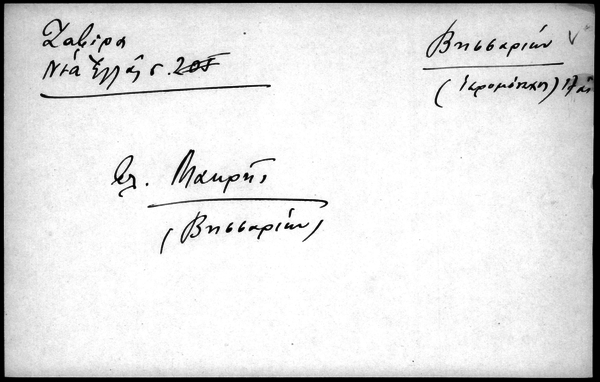 Ζαβίρα
Νέα Ἑλλάς σ. 205
Βησσαρίων
(ἱερομόναχος)
Βλ. Μακρῆς
(Βησσαρίων)